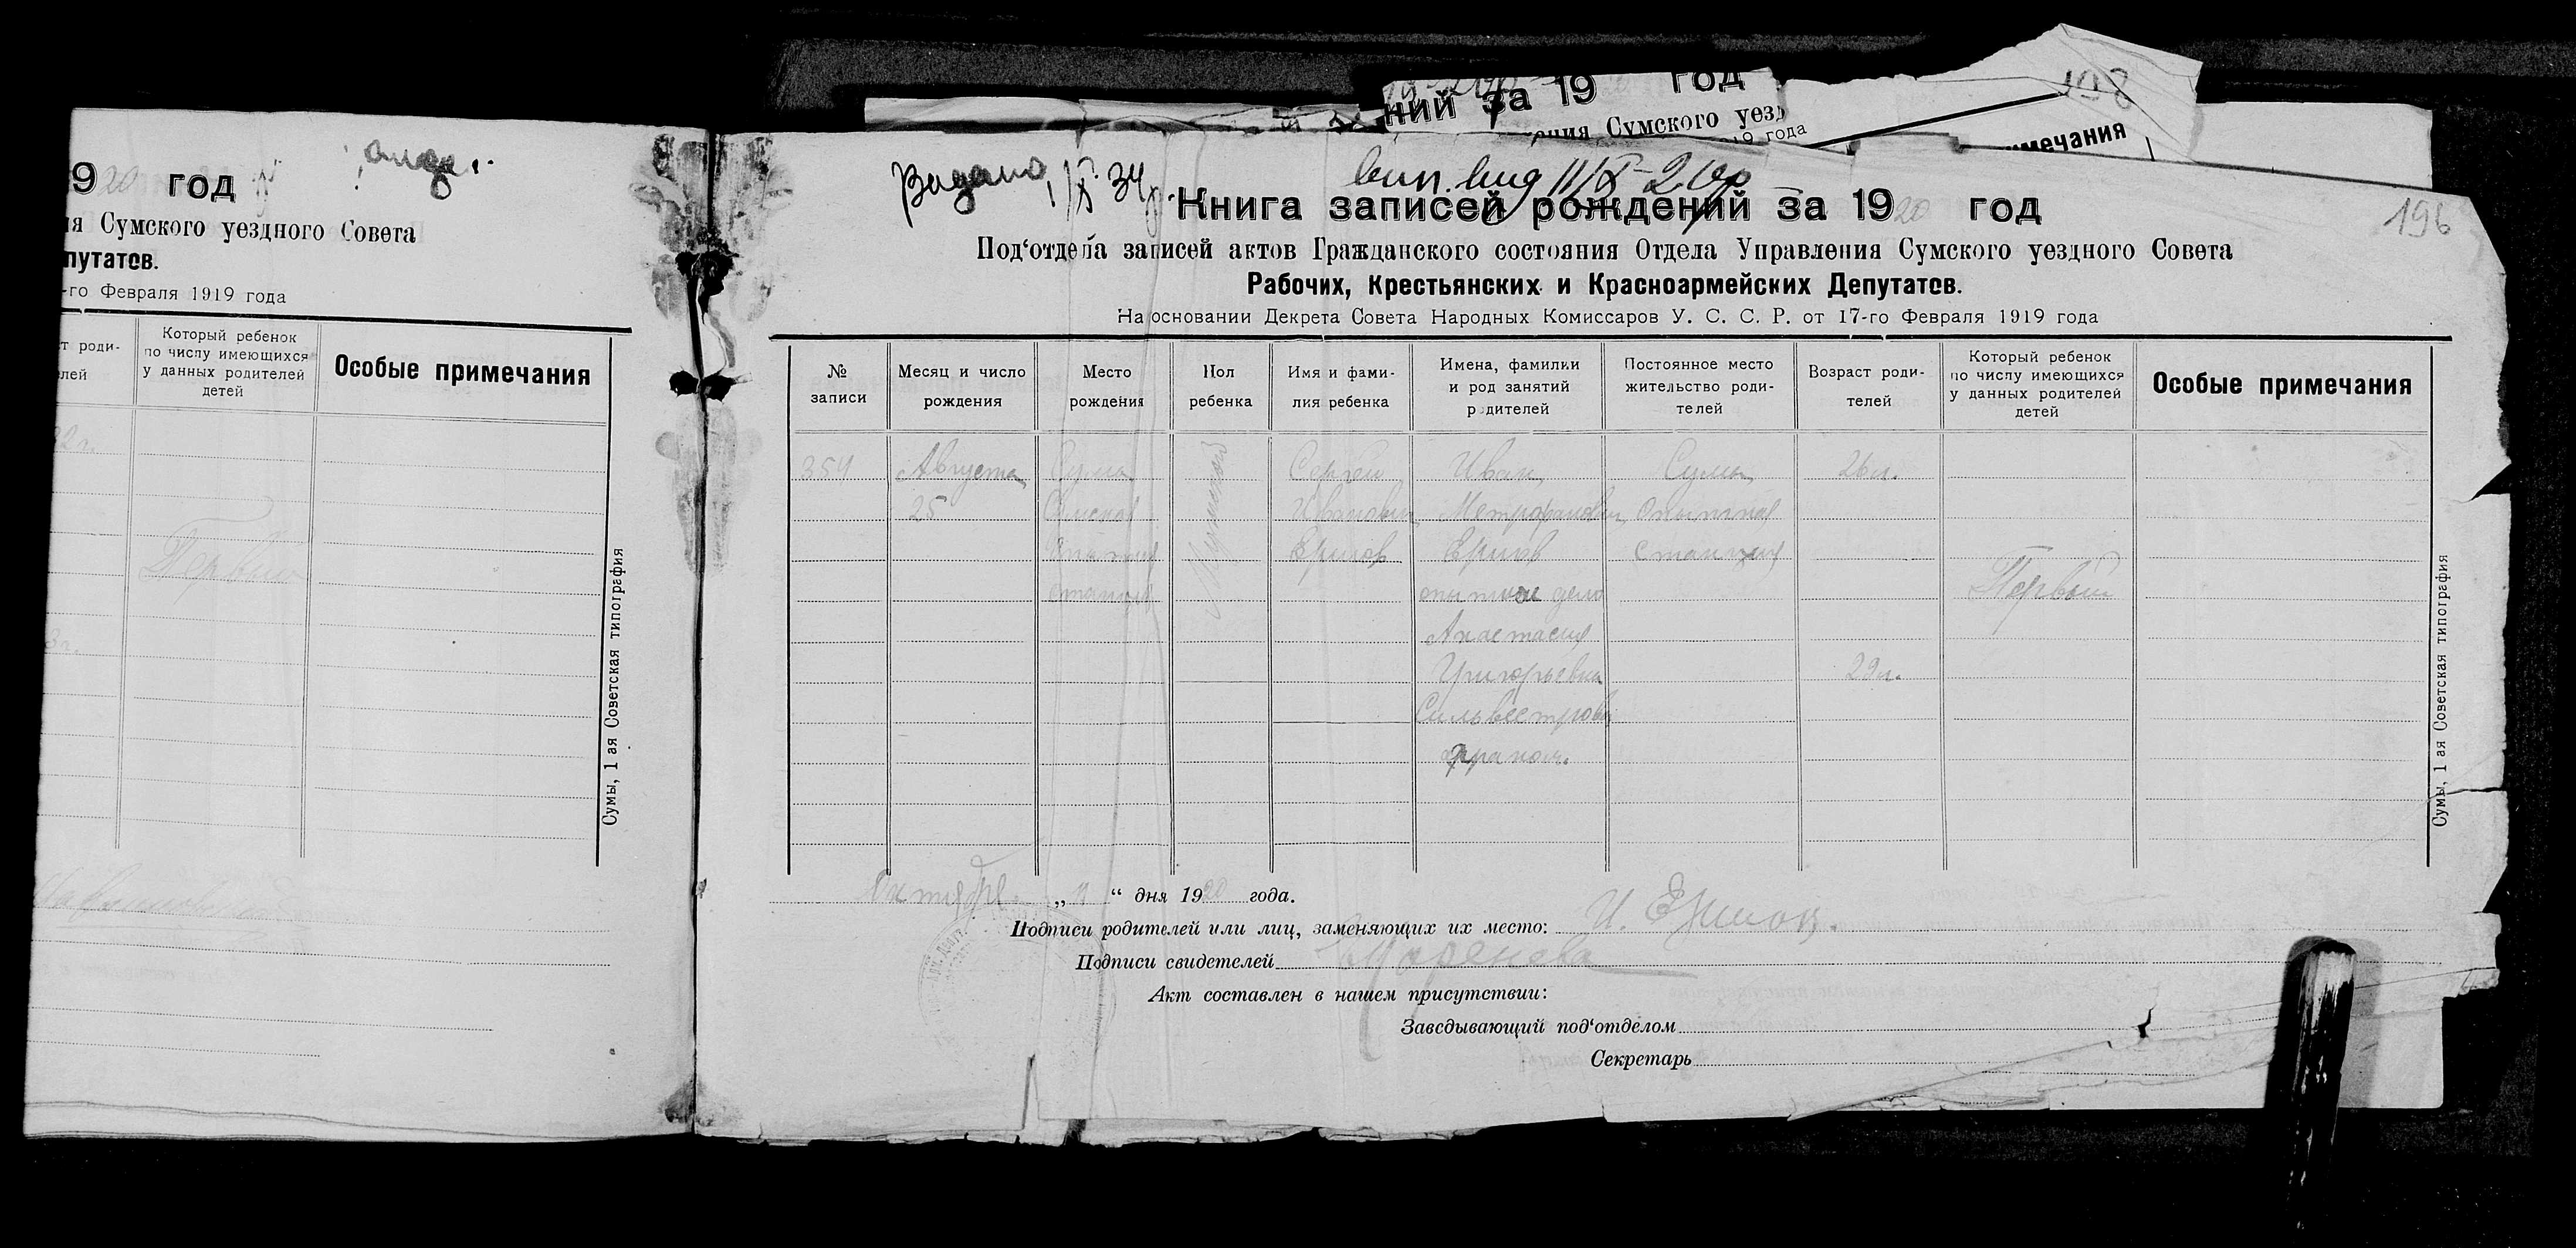 ний за 19 год
ния Сумского уезд
19 года
198
мечания
920 год
ия Сумского уездного Совета
путатов.
-го Февраля 1919 года
т роди-
лей
Который ребенок
по числу имеющихся
у данных родителей
детей
Особые примечания
Первый
Сумы, 1 ая Советская типография
Выдано
Книга записей рождений за 1920 год
196
Под‘отдела записей актов Гражданского состояния Отдела Управления Сумского уездного Совета
Рабочих, Крестьянских и Красноармейских Депутатов.
На основании Декрета Совета Народных Комиссаров У. С. С. Р. от 17-го Февраля 1919 года
№
записи
Месяц и число
рождения
Место
рождения
Пол
ребенка
Имя и фами-
лия ребенка
Имена, фамилии
и род занятий
родителей
Постоянное место
жительство роди-
телей
Возраст роди-
телей
Который ребенок
по числу имеющихся
у данных родителей
детей
Особые примечания
354
Августа
25
Сумы
Сумская
Опытная
станция
Мужской
Сергей
Иванович
Ершов
Иван
Митрофанович
Ершов
опытное дело
Анастасия
Григорьевна
Сильвестрова
Сумы
Опытная
станция
26 л.
29 л.
Первый
Сумы, 1 ая Советская типография
Октября „ “ дня 1920 года.
Подписи родителей или лиц, заменяющих их место: И. Ершов.
Подписи свидетелей
Акт составлен в нашем присутствии:
Заведывающий под‘отделом
Секретарь